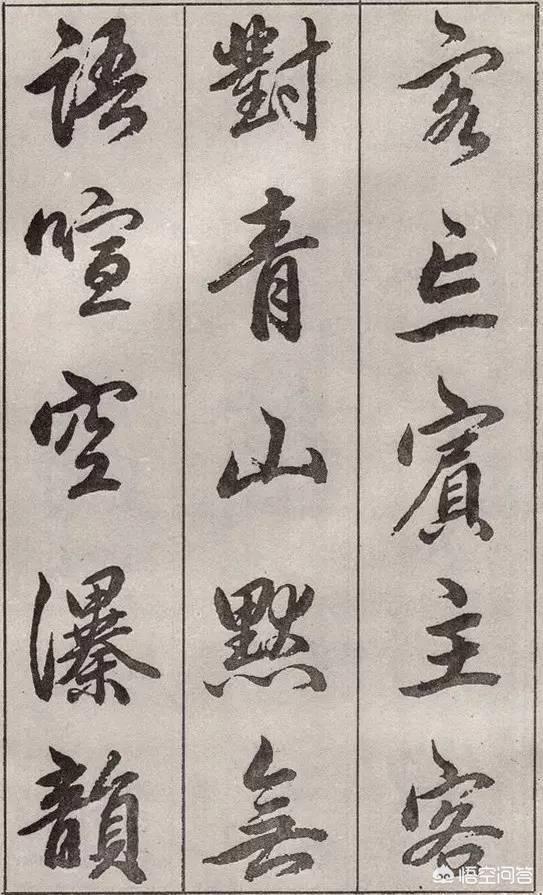 客忘賓主客
對青山默無
語喧空瀑韻
悟空问答